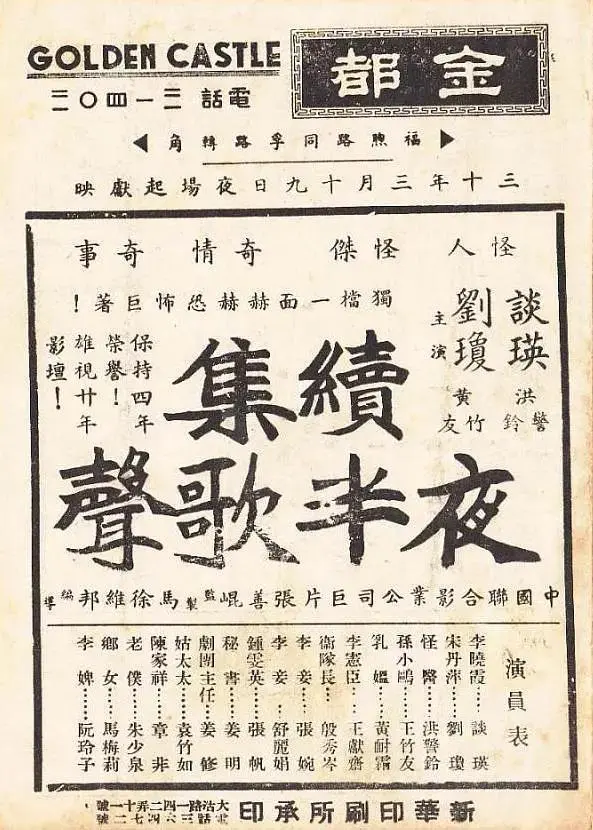 GOLDEN CASTLE
金都
電話
福煦路同孚路轉角
三十年三月十九日夜場起獻映
怪人怪傑奇情奇事
獨檔一面赫赫恐怖巨著！
談瑛
劉瓊
主演
洪警鈴
黃竹友
保持四年
榮譽！
雄視廿年
影壇！
續集
夜半歌聲
中國聯合影業公司巨片張善崐監製馬徐維邦編導
演員表
李曉霞……談瑛
宋丹萍……劉瓊
怪醫……洪警鈴
孫小鷗……王竹友
乳媼……黃耐霜
李憲臣……王獻齋
衞隊長……殷秀岑
李妾……張婉
李妾……舒麗娟
鍾雯英……張帆
秘書……姜明
劇團主任……姜修
姑太太……袁竹如
陳家祥……章非
老僕……朱少泉
鄉女……馬梅莉
李婢……阮玲子
新華印刷所承印